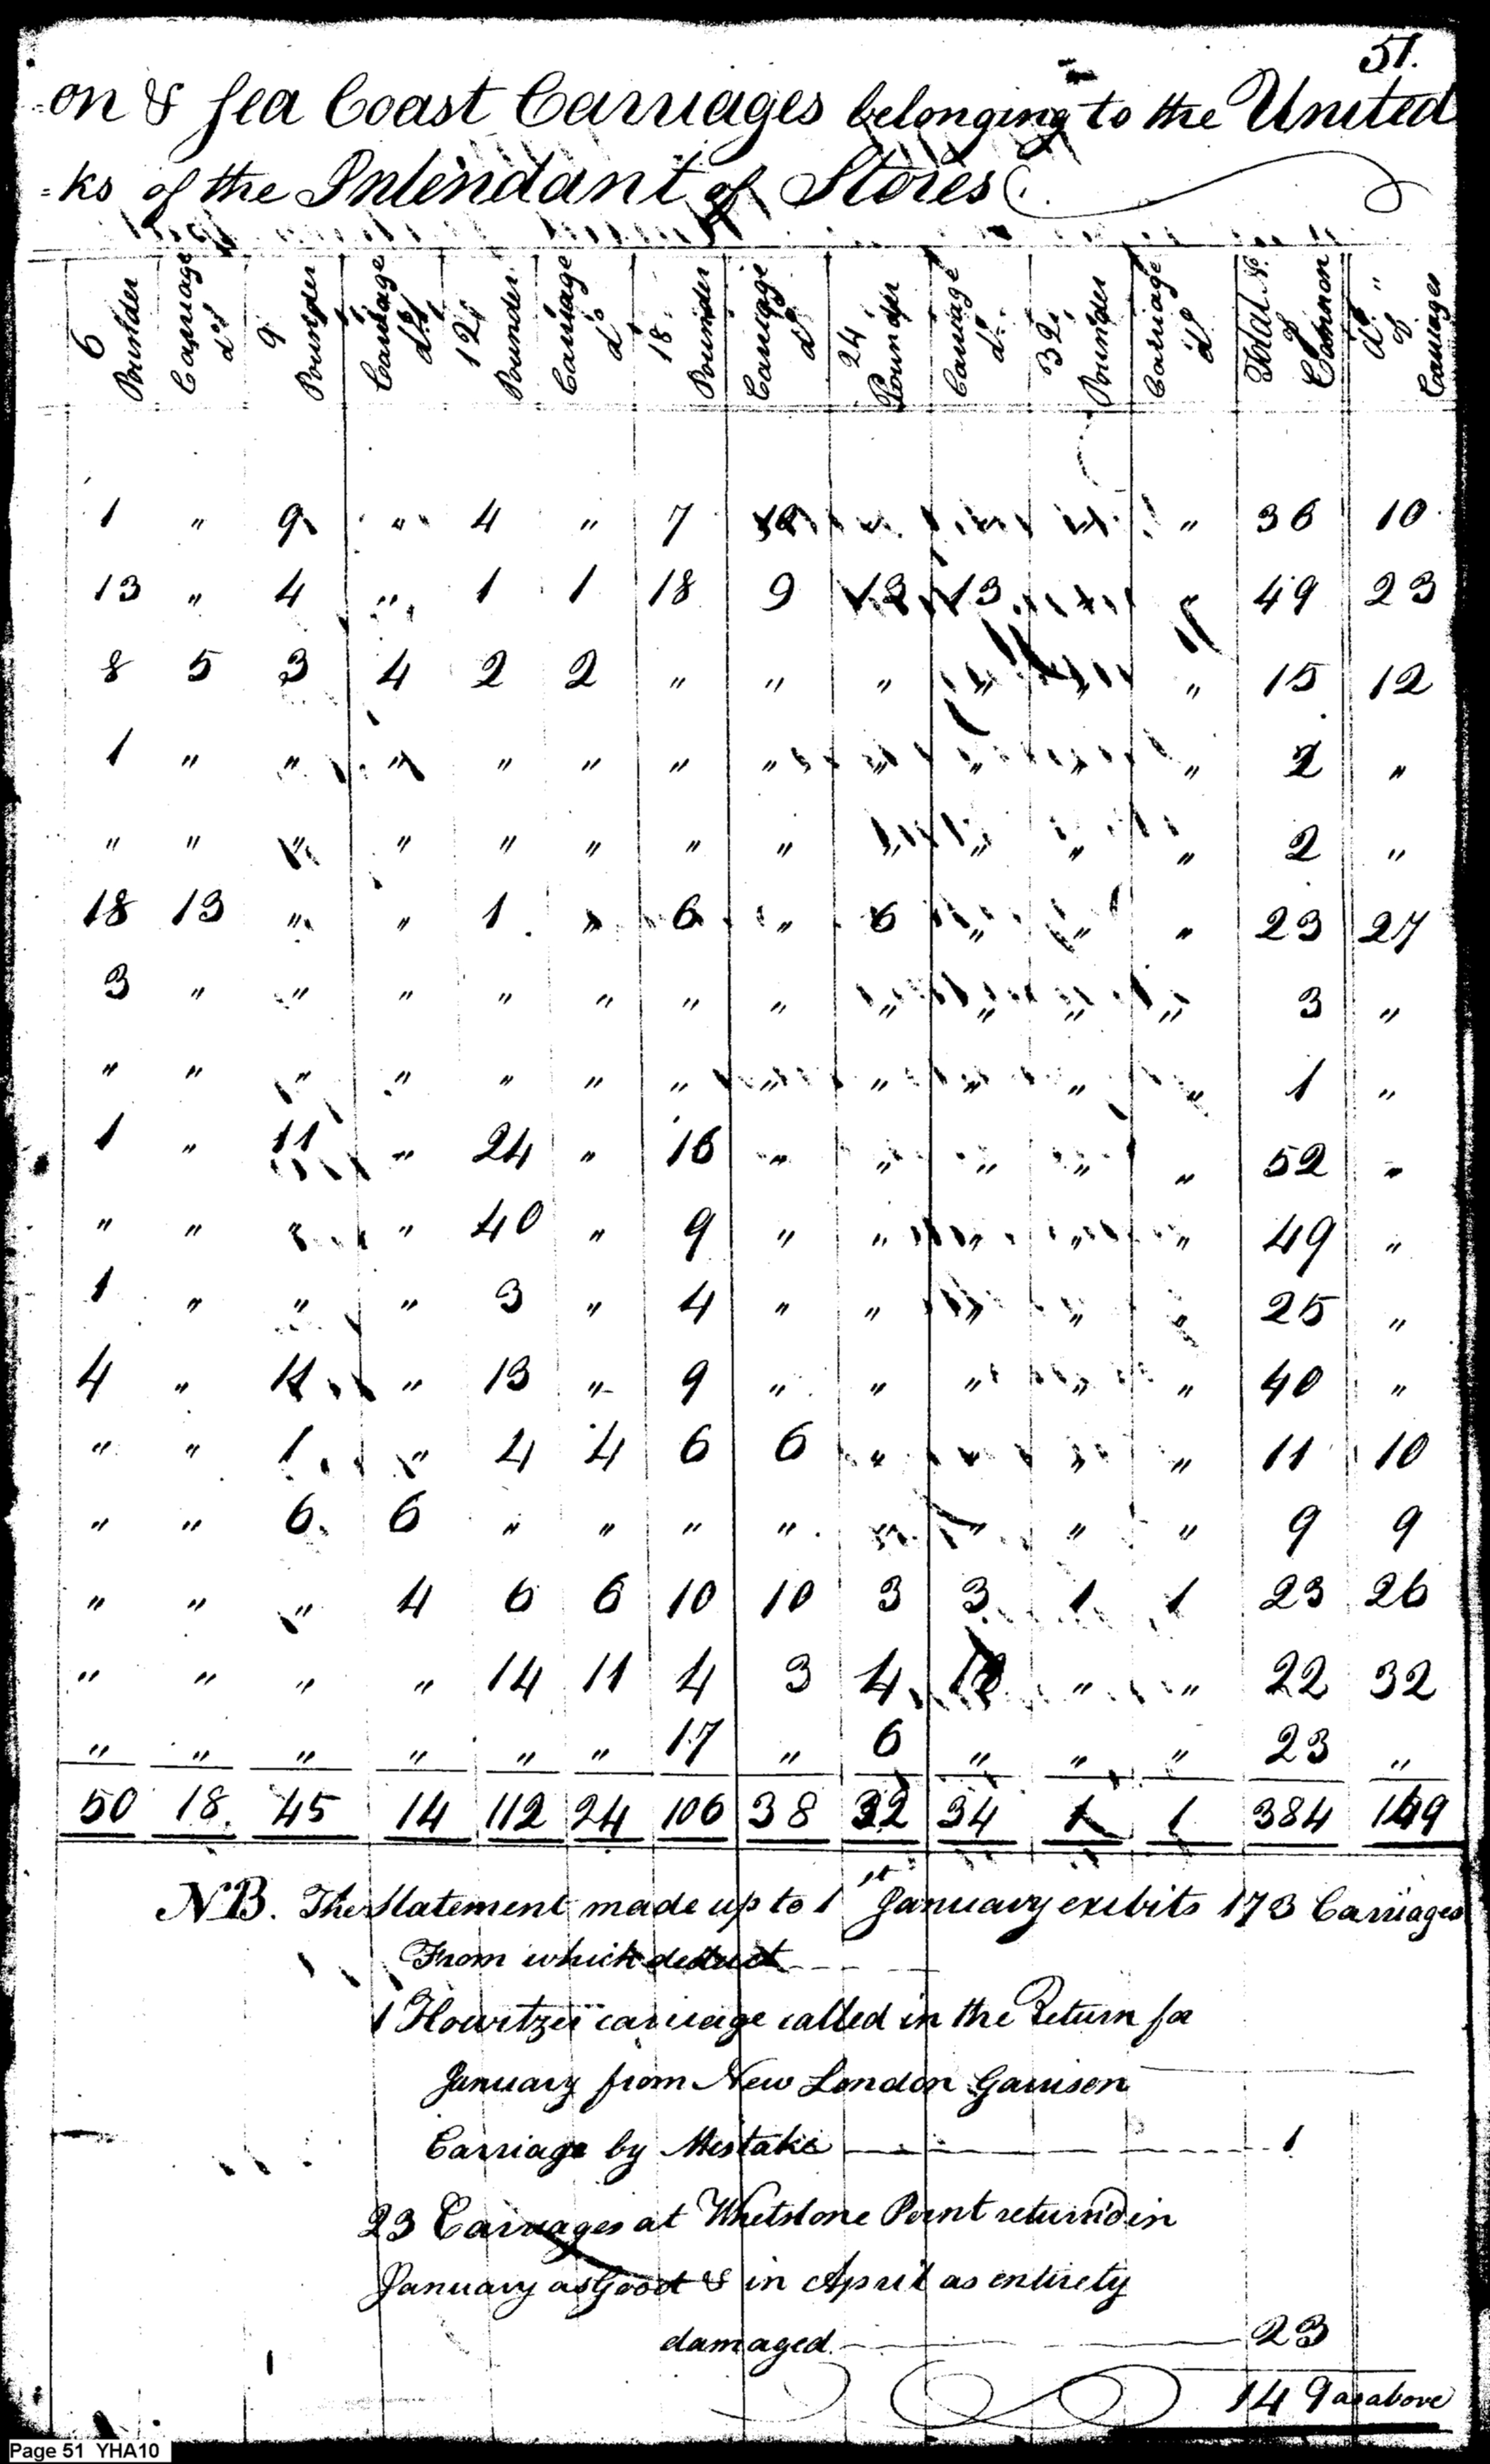 51.
=on & Sea Coast Carriages belonging to the United
=ks of the Intendant of Stores.
6 Pounder | Carriage do | 9 Pounder | Carriage do | 12 Pounder | Carriage do | 18 Pounder | Carriage do | 24 Pounder | Carriage do | 32 Pounder | Carriage do | Total No. of Cannon | do " of Carriages
1 " 9 " 4 " 7 10 " " " " 36 10
13 " 4 " 1 1 18 9 13 13 " " 49 23
8 5 3 4 2 2 " " " " " " 15 12
1 " " " " " " " " " " " 2 "
" " " " " " " " " " " " 2 "
18 13 " " 1 " 6 " 6 " " " 23 27
3 " " " " " " " " " " " 3 "
" " " " " " " " " " " " 1 "
1 " 11 " 24 " 16 " " " " " 52 "
" " " " 40 " 9 " " " " " 49 "
1 " " " 3 " 4 " " " " " 25 "
4 " 11 " 13 " 9 " " " " " 40 "
" " 1 " 4 4 6 6 " " " " 11 10
" " 6 6 " " " " " " " " 9 9
" " " 4 6 6 10 10 3 3 1 1 23 26
" " " " 14 11 4 3 4 18 " " 22 32
" " " " " " 17 " 6 " " " 23 "
50 18 45 14 112 24 106 38 32 34 1 1 384 149
NB. The Statement made up to 1st January exibits 173 Carriages
From which deduct
1 Howitzer carriage called in the Return for
January from New London Garrison
Carriage by Mistake 1
23 Carriages at Whetstone Point return'd in
January as Good & in April as entirety
damaged 23
149 as above
Page 51 YHA10